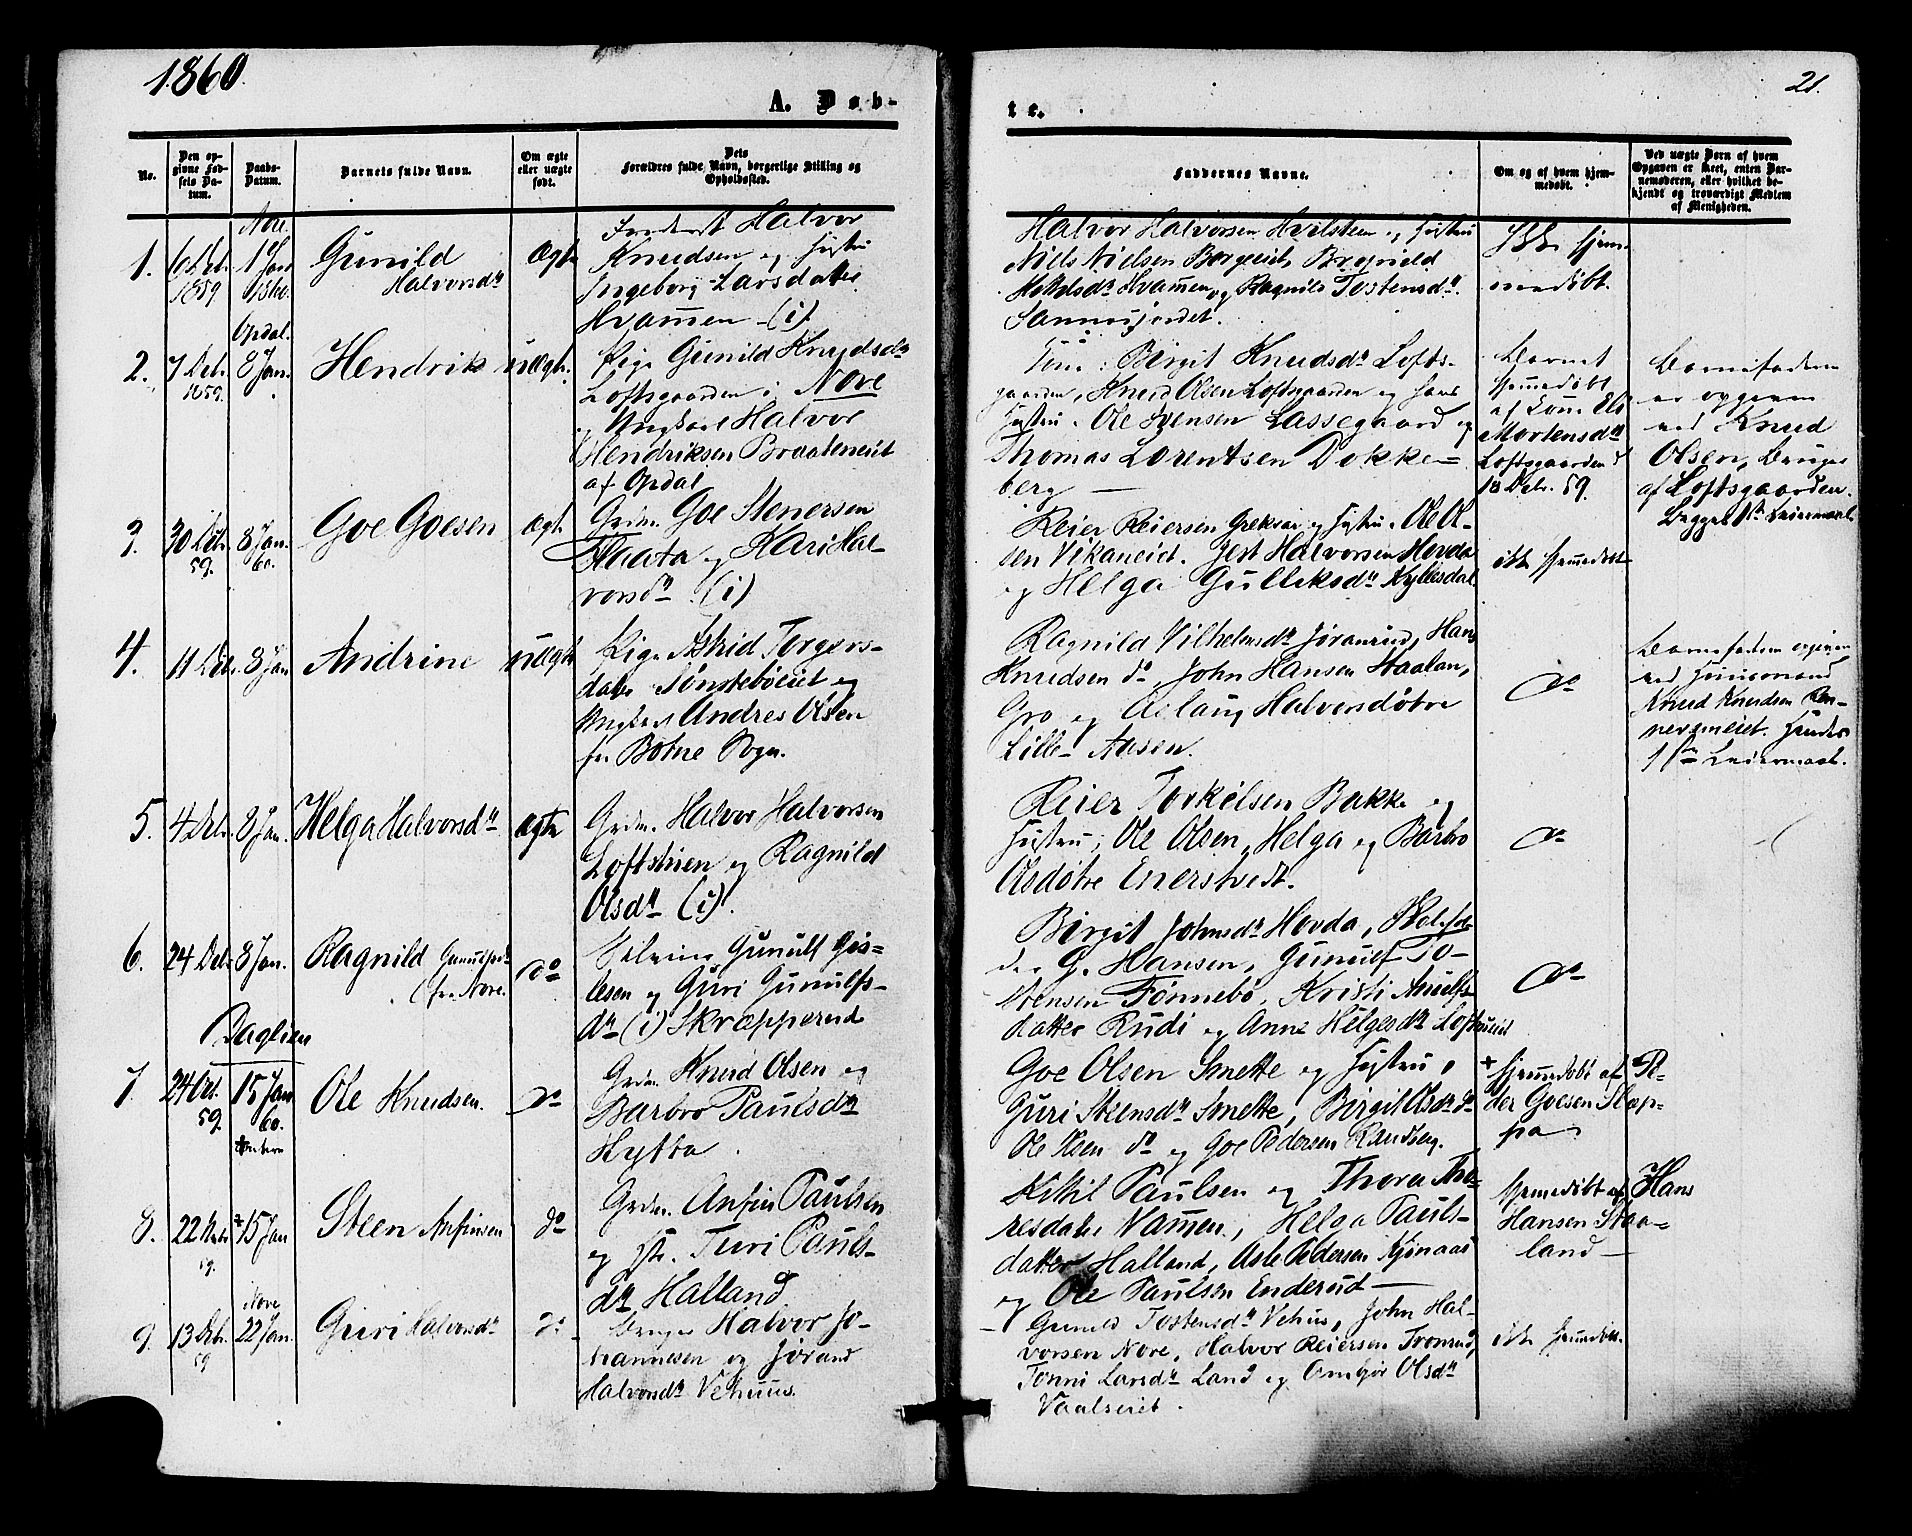 1860.
21.
A. Døb-
te.
No.
Den op-
givne Fød-
sels Da-
tum.
Daabs-
Datum.
Barnets fulde Navn.
Om ægte
eller uægte
født.
Dets
Forældres fulde Navn, borgerlige Stilling og
Opholdssted.
Faddernes Navne.
Om og af hvem hjem-
medøbt.
Ved uægte Børn af hvem
Opgaven er skeet, enten Bar-
nemoderen, eller hvilket be-
kjendt og troværdigt Medlem
af Menigheden.
Nore
1.
6 Debr.
1859
1 Jan
Gunild
Halvorsdr
Ægte
Halvor
Knudsen og Hustru
Ingeborg Larsdatter
Hvammen (i)
Halvor Halvorsen Hvilsteen og Hustru
Niels Nielsen
Hvammen og Ragnild Tostensdr
hjem-
medøbt.
Opdal.
2.
7 Debr.
1859.
8 Jan.
Hendrik
uægte.
Pige Gunild Knudsdr
Loftsgaarden i Nore
og Ungkarl Halvor
Hendriksen Braateneiet
af Opdal
Birgit Knudsdr Lofts-
gaarden, Knud Olsen Loftsgaarden og hans
Hustru. Ole Svensen Lassegaard og
Thomas Lorentsen Dokke-
berg
Barnet
hjemmedøbt
af
Mortensdr
Loftsgaarden d
18 Debr. 59.
Barnefaderen
er opgiven
ved Knud
Olsen, Bruger
af Loftsgaarden.
Begges 1ste Leiermaal
3.
30 Debr.
59.
8 Jan.
60.
Goe Goesen
ægte
Grdm. Goe Stenersen
Haata og Kari Hal-
vorsdr (i)
Reier Reiersen og Hustru. Ole Ol-
sen Vikaneiet. Halvorsen Hovda
og Helga Gulliksdr Kyllesdal
ikke hjemmedøbt
4.
11 Debr.
8 Jan
Andrine
uægte
Pige Astrid Torgers-
datter Tønstebøeiet og
Ungkarl Andres Olsen
fra Botne Sogn.
Ragnild Vilhelmsdr Jøranrud, Hans
Knudsen do, John Hansen Staalan,
Gro og Aslaug Halvorsdøtre
Lille Aasen.
do
Barnefaderen opgiven
ved Huusmand
Knud Knudsen
Hendes
1ste Leiermaal.
5.
4 Debr.
8 Jan.
Helga Halvorsdr
ægte
Grdm. Halvor Halvorsen
Loftstuen og Ragnild
Olsdr (i).
Reier Torkilsen Bakke og
Hustru; Ole Olsen, Helga og Barbro
Olsdøtre Enerstvedt.
do
6.
24 Debr.
8 Jan.
Ragnild
(fra Nore.
do
Gunulf Gis-
lesen og Guri Gunulfs-
dr (i) Skrapperud
Birgit Johnsdr Hovda,
G. Hansen, Gunulf To-
stensen Tønnebø, Kristi
datter Rudi og Anne Helgesdr
do
Daglien
7.
24 Oct.
59.
15 Jan
60.
Ole Knudsen.
do
Grdm. Knud Olsen og
Barbro Paulsdr
Hytta
Goe Olsen Smette og Hustru,
Guri Steensdr Smette, Birgit Olsdr do
Ole Olsen do og Goe Pedersen Randberg.
+ hjemmedøbt af
Goesen
8.
22
59.
+15 Jan
Steen Anfinsen
do
Grdm. Anfin Paulsen
og Turi Pauls-
dr Halland
Kittil Paulsen og Thora Tho-
resdatter Nammen, Helga Pauls-
datter Halland, Asle Pedersen Kjønaas
og Ole Paulsen Enderud
hjemmedøbt af Hans
Hansen Staa-
land
Nore
9.
13 Debr.
59
22 Jan.
Guri Halvorsdr
do
Bruger Halvor Jo-
hannesen og Jørand
Halvorsdr Vehuus.
Gunild Tostensdr Vehuus, John Hal-
vorsen Nore, Halvor Reiersen Tronrud,
Tonni Larsdr Land og Olsdr
Vaalseiet.
ikke hjemmedøbt.